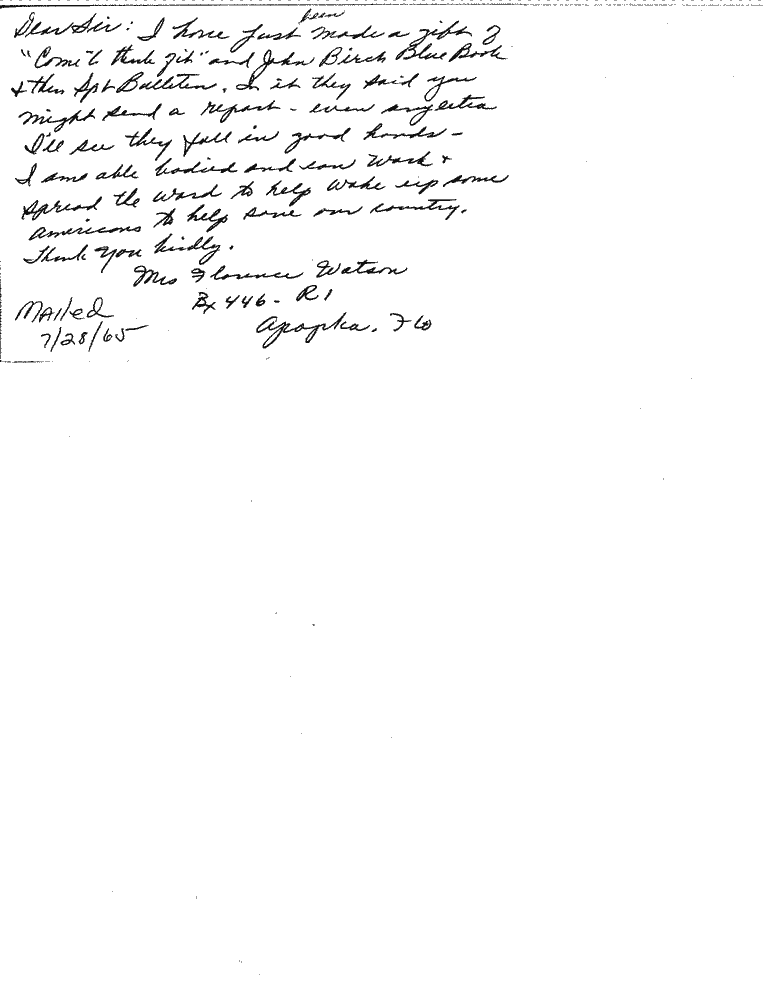 Dear Sir: I have just been made a gift of
"Come 'l think 'git" and John Birch Blue Book
& then Spt Bulleten. In it they said you
might send a report - even any extra
I'll see they fall in good hands -
I am able bodied and can work &
spread the word to help wake up some
americans to help save our country.
Thank you kindly.
Mrs Florence Watson
Bx 446 - R1
Apopka, Fla
Mailed
7/28/65